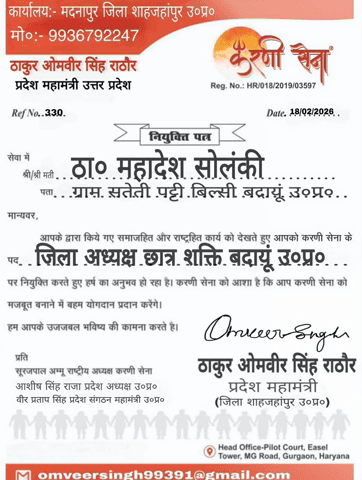 कार्यालय:- मदनापुर जिला शाहजहांपुर उ०प्र०
मो०:- 9936792247
करणी सेना
ठाकुर ओमवीर सिंह राठौर
प्रदेश महामंत्री उत्तर प्रदेश
Reg. No.: HR/018/2019/03597
Ref No. 330
Date. 18/02/2026
नियुक्ति पत्र
सेवा में
श्री/श्री मती ठा० महादेश सोलंकी
पता ग्राम सतेती पट्टी बिल्सी बदायूं उ०प्र०
मान्यवर,
आपके द्वारा किये गए समाजहित और राष्ट्रहित कार्य को देखते हुए आपको करणी सेना के
पद जिला अध्यक्ष छात्र शक्ति बदायूं उ०प्र०
पर नियुक्ति करते हुए हर्ष का अनुभव हो रहा है। करणी सेना को आशा है कि आप करणी सेना को
मजबूत बनाने में बहम योगदान प्रदान करेंगे।
हम आपके उजजबल भविष्य की कामना करते है।
Omveer Singh
प्रति
सूरजपाल अम्मू राष्ट्रीय अध्यक्ष करणी सेना
आशीष सिंह राजा प्रदेश अध्यक्ष उ०प्र०
वीर प्रताप सिंह प्रदेश संगठन महामंत्री उ०प्र०
ठाकुर ओमवीर सिंह राठौर
प्रदेश महामंत्री
(जिला शाहजहांपुर उ०प्र०)
Head Office-Pilot Court, Easel
Tower, MG Road, Gurgaon, Haryana
omveersingh99391@gmail.com